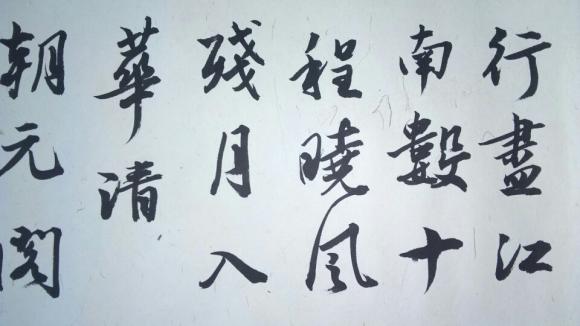 行盡江
南數十
程曉風
殘月入
華清
朝元閣